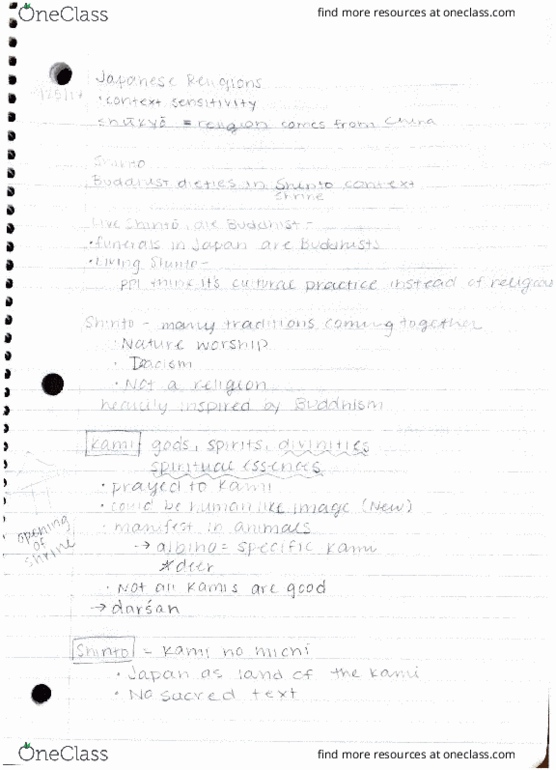 OneClass find more resources at oneclass.com
Japanese Religions
1/25/17
• context sensitivity
shūkyō = religion comes from China
Shinto
Buddhist dieties in Shinto context
shrine
Live Shintō, die Buddhist -
• funerals in Japan are Buddhists
• Living Shinto -
ppl think it's cultural practice instead of religious
Shinto - many traditions coming together
• Nature worship
• Daoism
• Not a religion
heavily inspired by Buddhism
Kami gods, spirits, divinities
spiritual essences
• prayed to kami
• could be human like image (New)
• manifest in animals
→ albino = specific kami
*deer
opening
of
shrine
• Not all kamis are good
→ darśan
Shinto - kami no michi
• Japan as land of the kami
• No sacred text
OneClass find more resources at oneclass.com